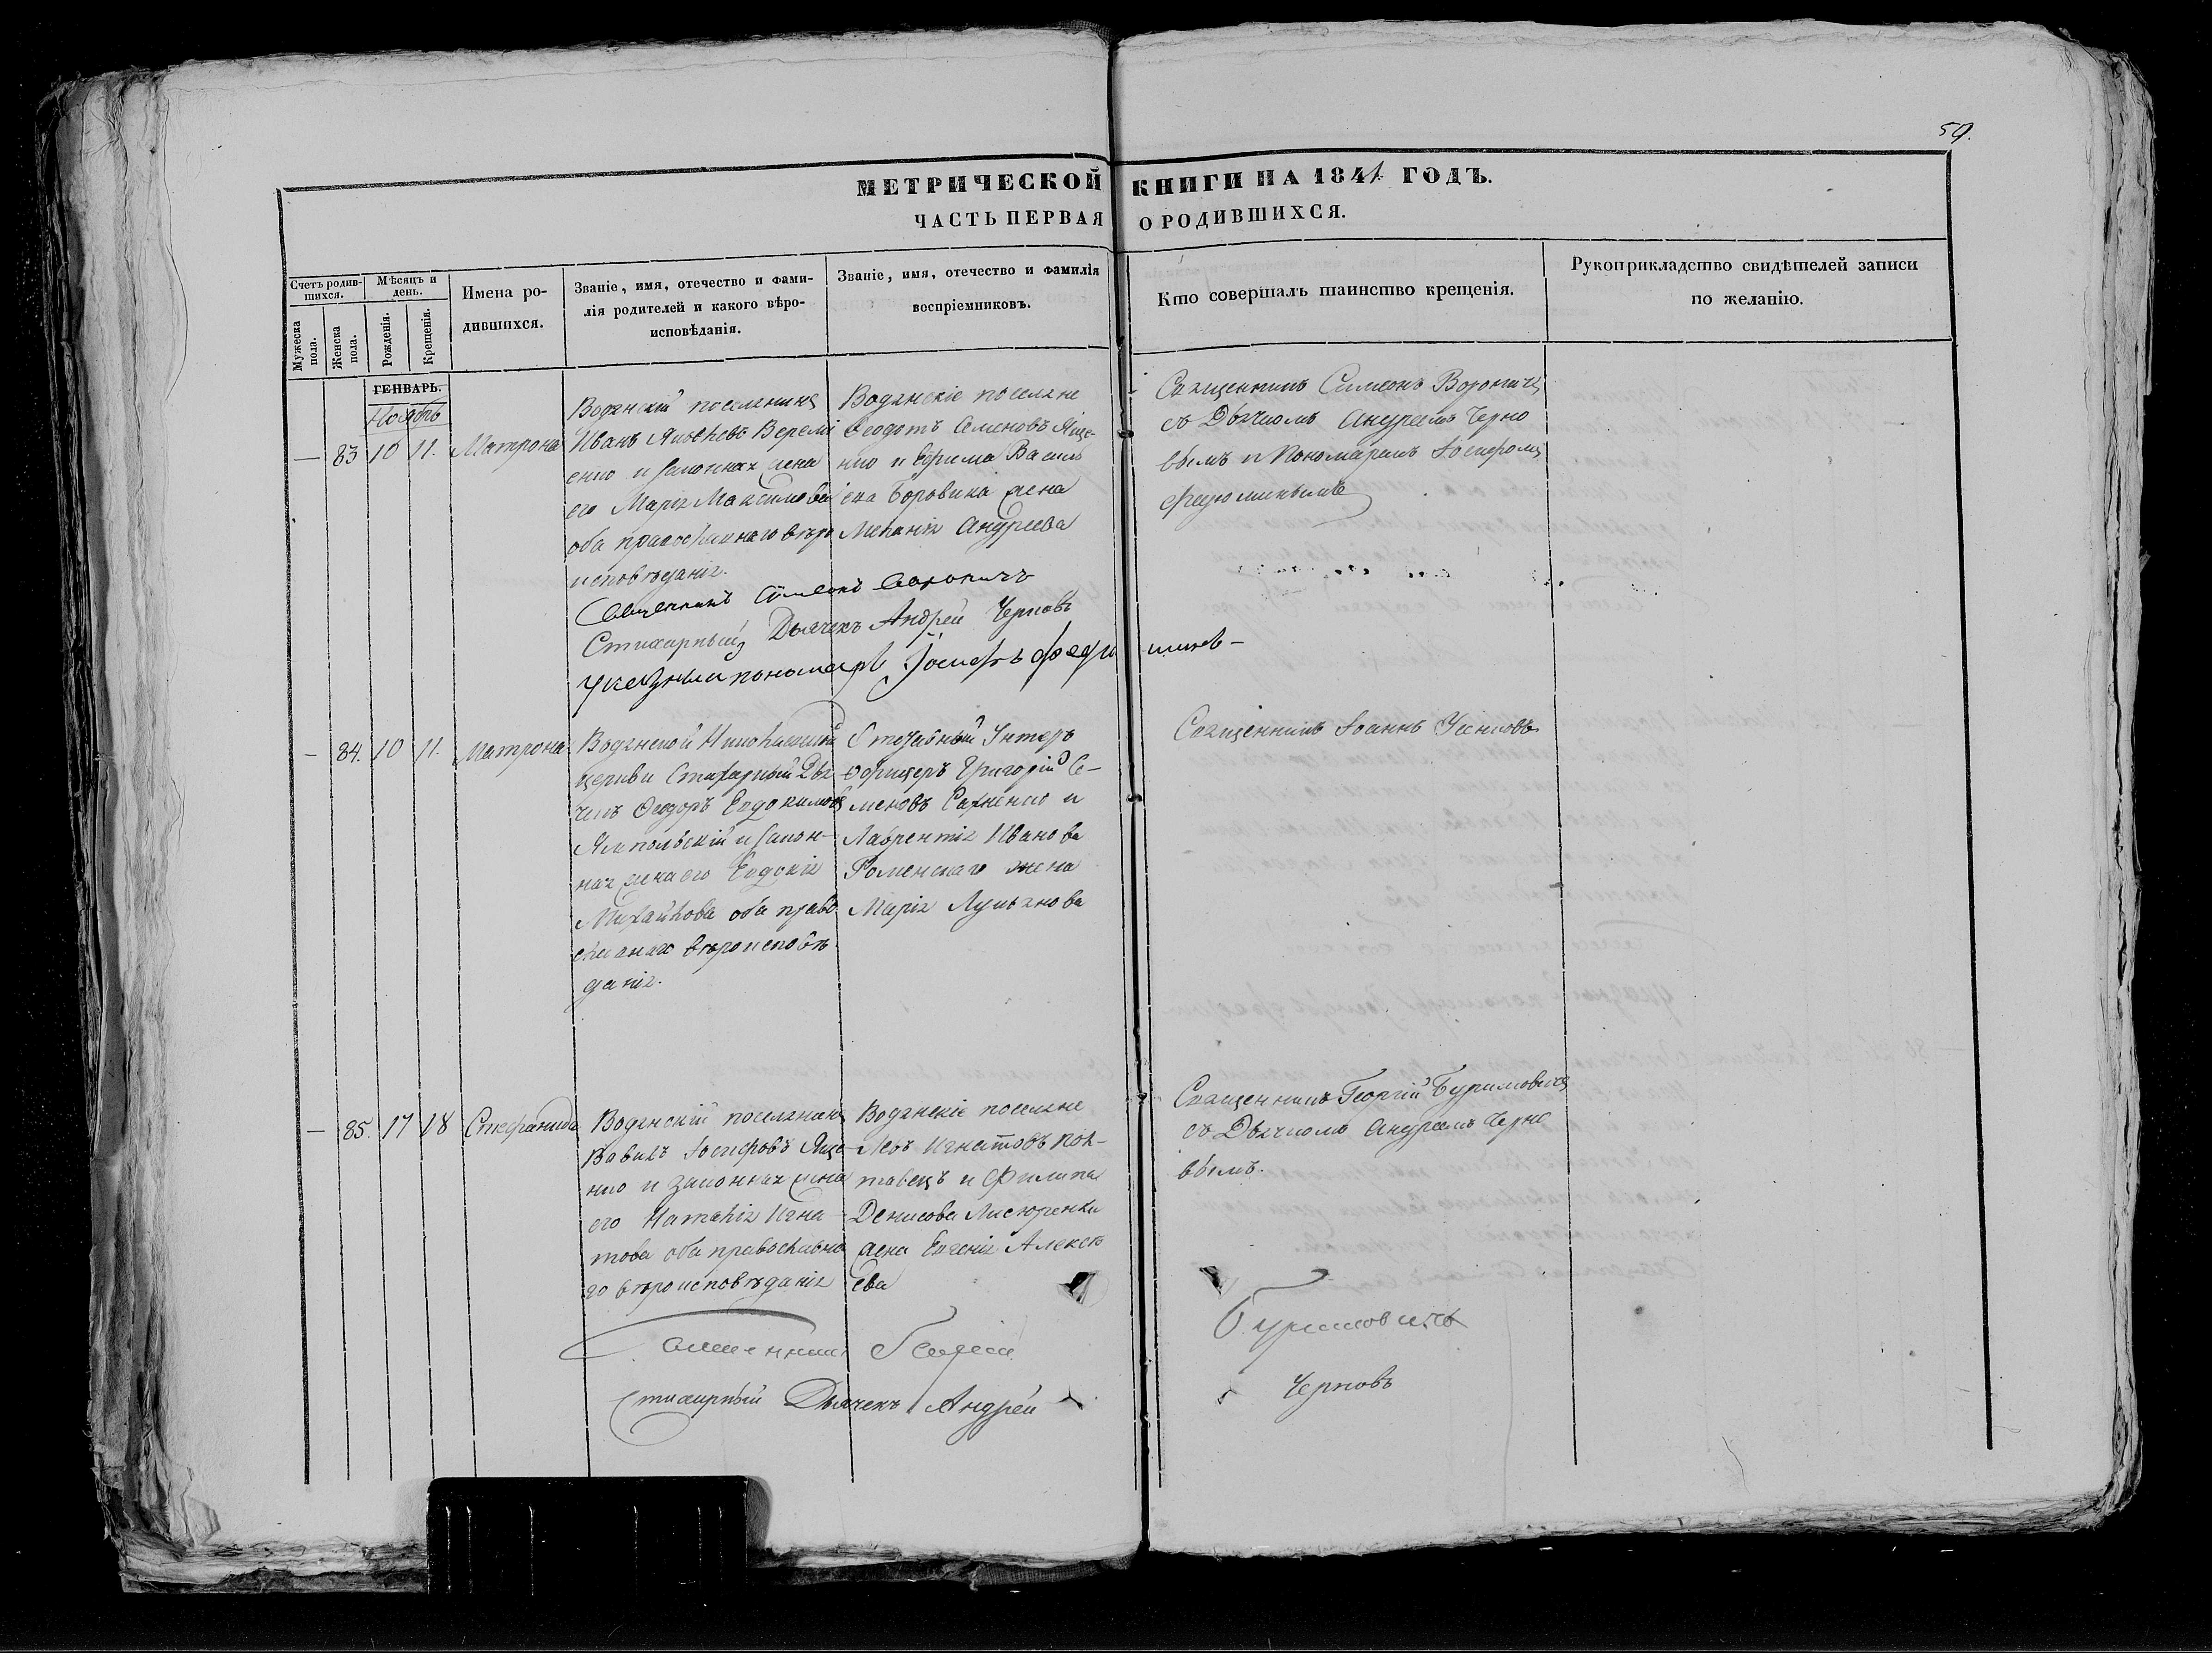 59.
МЕТРИЧЕСКОЙ КНИГИ НА 1841 ГОДЪ.
ЧАСТЬ ПЕРВАЯ О РОДИВШИХСЯ.
Счетъ родив-
шихся.
Мужеска пола.
Женска пола.
Мѣсяцъ и день.
Рожденія.
Крещенія.
Имена ро-
дившихся.
Званіе, имя, отечество и фами-
лія родителей и какого вѣро-
исповѣданія.
Званіе, имя, отечество и фамилія
воспріемниковъ.
Кто совершалъ таинство крещенія.
Рукоприкладство свидѣтелей записи
по желанію.
ГЕНВАРЬ.
Ноябрь
— 83 10 11. Матрона
Водянскій поселянинъ
Иванъ Яковлевъ Вереми
енко и законная жена
его Марія Максимова
оба православнаго вѣро
исповѣданія.
Водянскіе поселяне
Ѳеодотъ Семеновъ Яще-
нко и Ефима Василь
ева Боровика жена
Меланія Андреева
Священникъ Симеонъ Вороничъ
съ Дьячкомъ Андреемъ Черно
вымъ и Пономаремъ Іосифомъ
Священникъ Симеонъ Вороничъ
Стихарный Дьячекъ Андрей Черновъ
указный пономарь Іосифъ
— 84. 10 11. Матрона
Водянской Николаевской
церкви Стихарный Дья
чекъ Ѳеодоръ Евдокимовъ
Ямпольскій и закон-
ная жена его Евдокія
Михайлова оба право
славнаго вѣроисповѣ
данія.
Отставный Унтеръ
Офицеръ Григорій Се-
меновъ Сахненко и
Лаврентія Иванова
Роменскаго жена
Марія Лукьянова
Священникъ Іоаннъ
— 85. 17 18 Стефанида
Водянскій поселянинъ
Вавилъ Іосифовъ Яще-
нко и законная жена
его Наталія Игна-
това оба православна
го вѣроисповѣданія
Водянскіе поселяне
Левъ Игнатовъ Пол-
тавецъ и Филипа
Денисова Лисюренка
жена Евгенія Алексѣ
ева
Священникъ Георгій Буримовичъ
съ Дьячкомъ Андреемъ Черно
вымъ.
Священникъ Георгій Буримовичъ
Стихарный Дьячекъ Андрей Черновъ